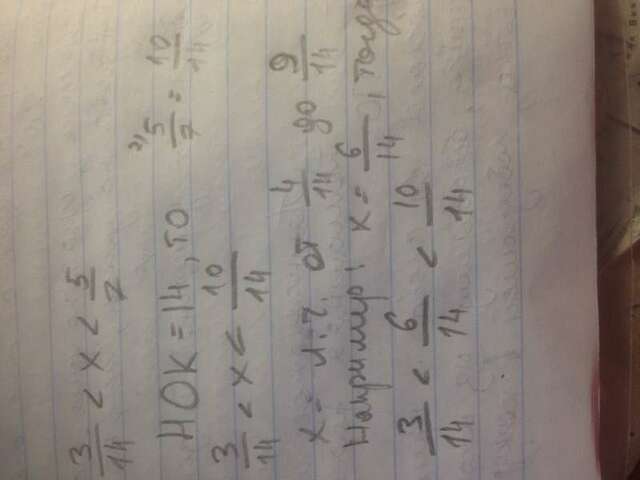 3/14 < x < 5/7
НОК = 14, то 2) 5/7 = 10/14
3/14 < x < 10/14
x = л.ч. от 4/14 до 9/14
Например: x = 6/14, тогда
3/14 < 6/14 < 10/14